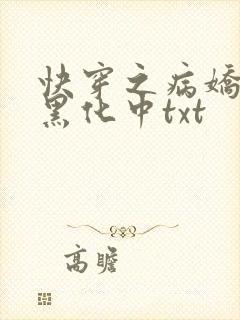 快穿之病嬌
黑化中txt
高瞻